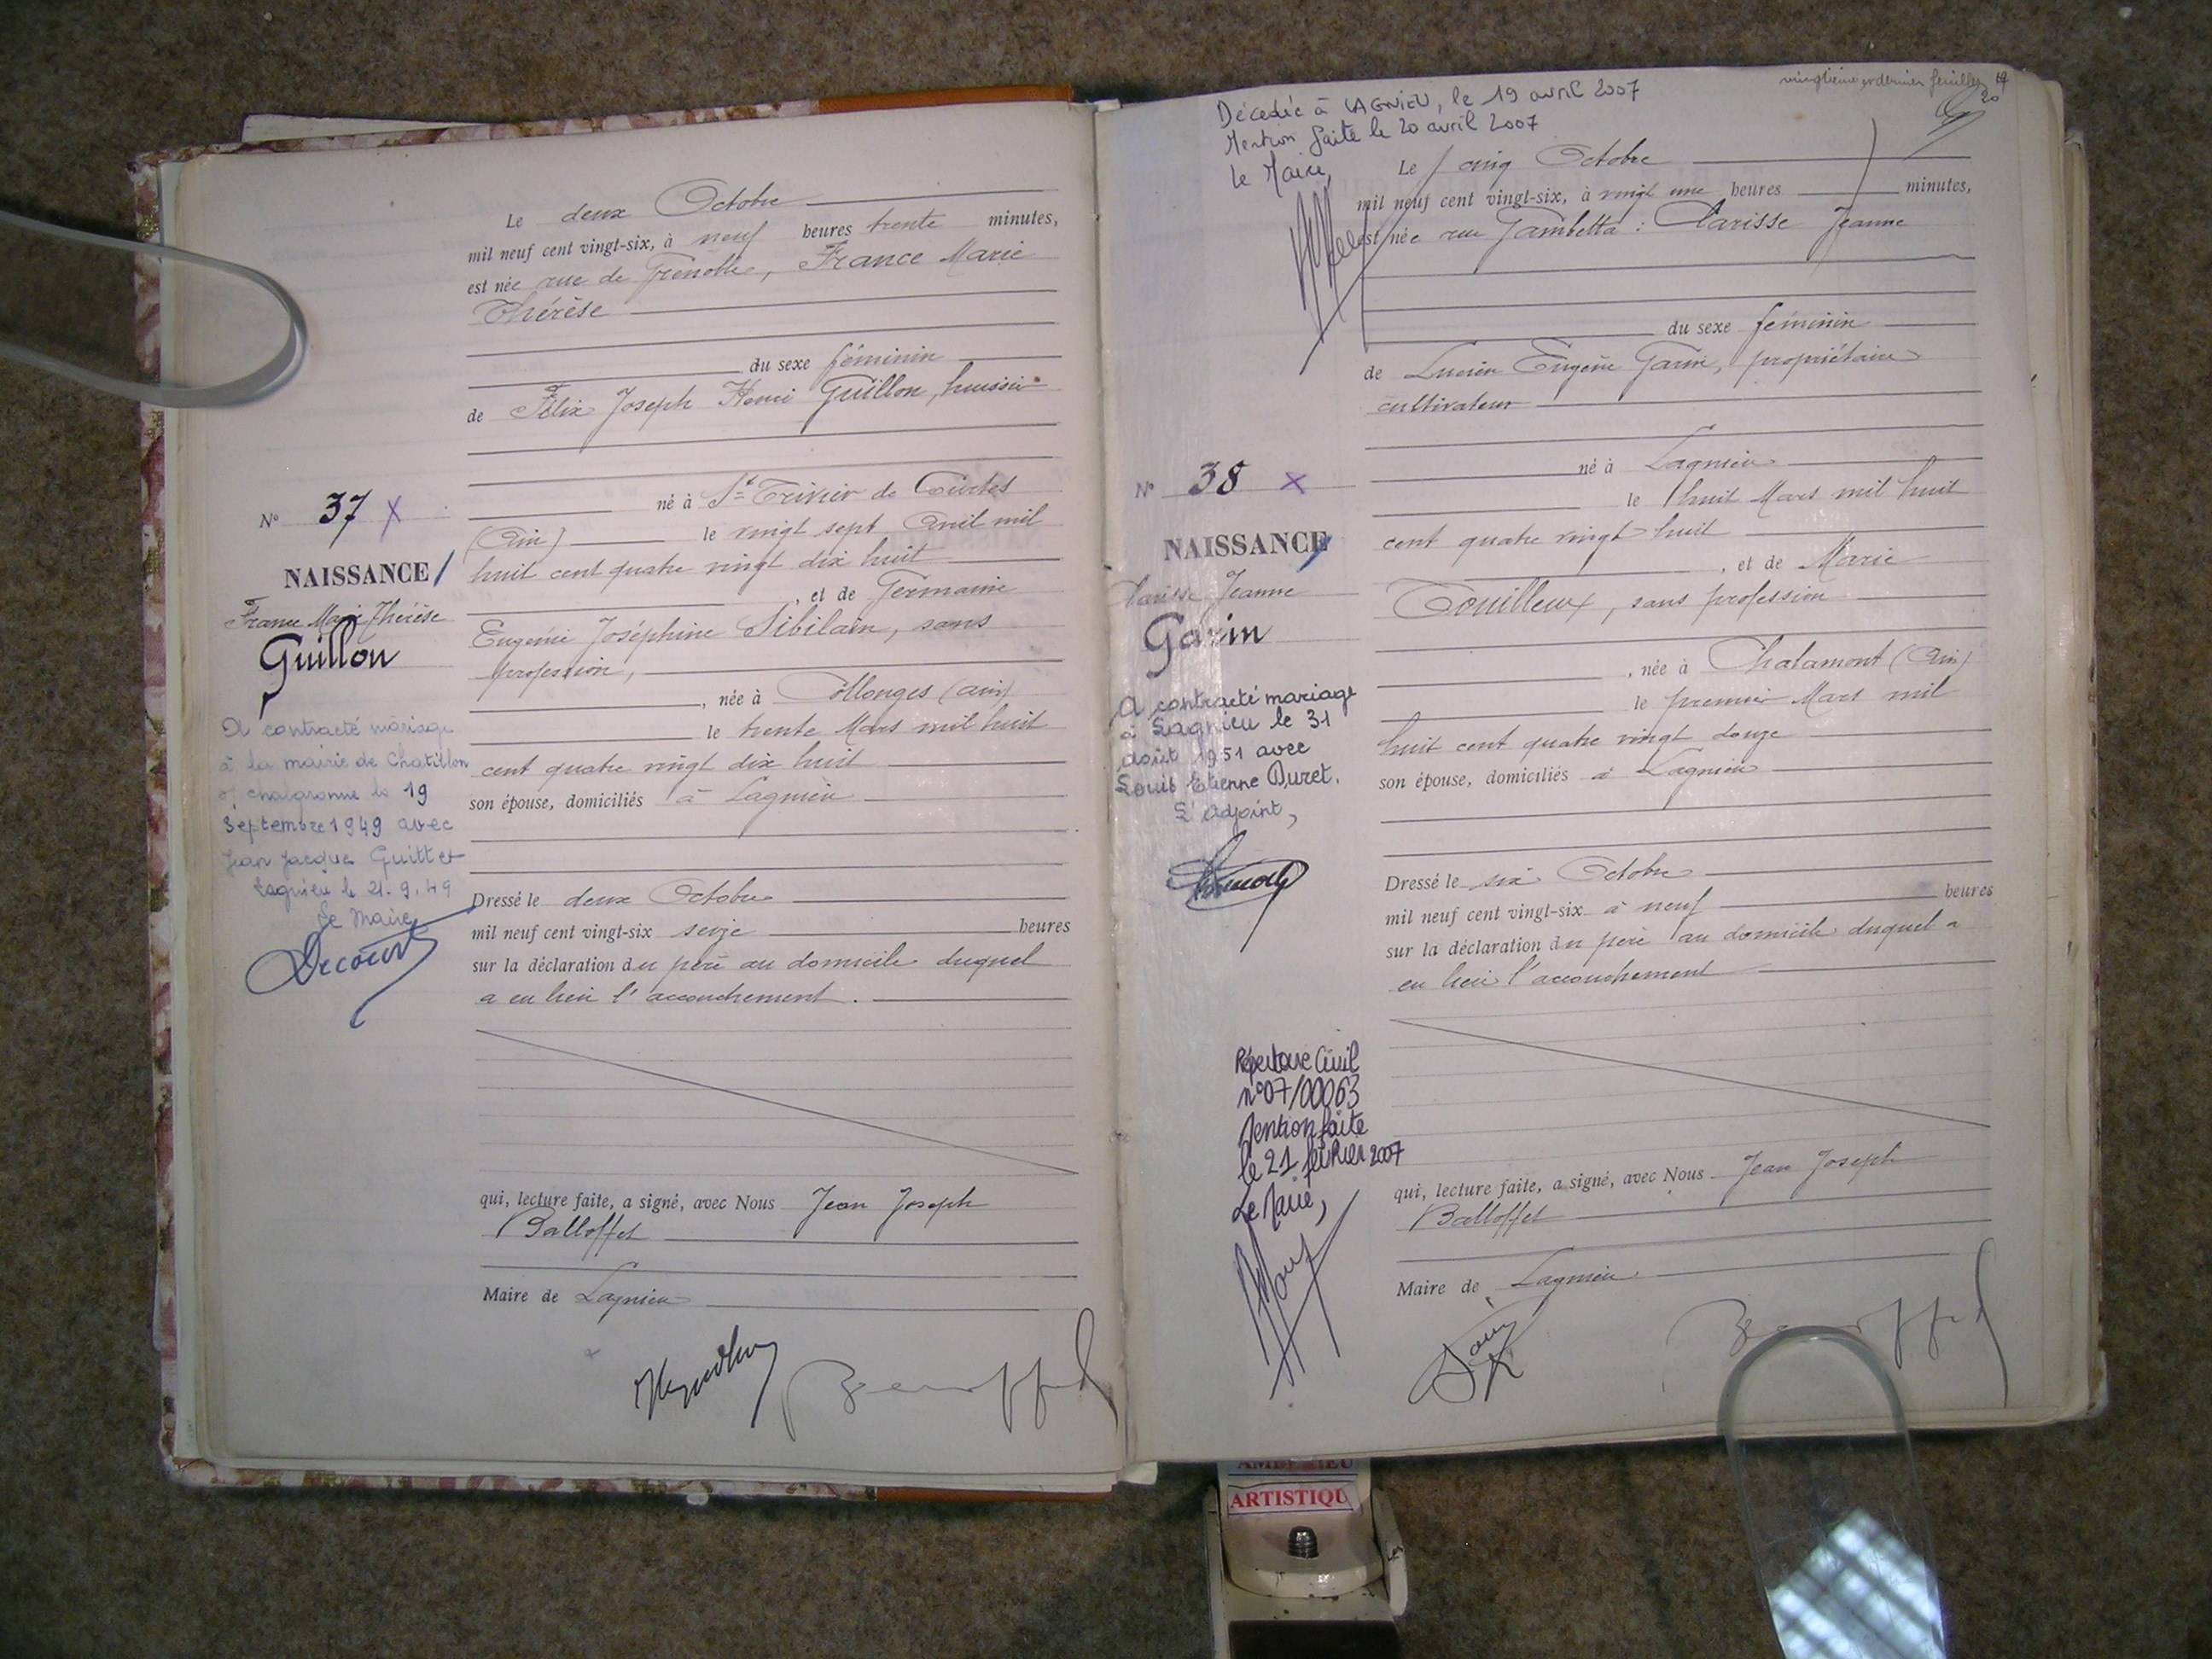 Le deux Octobre
mil neuf cent vingt-six, à neuf heures trente minutes,
est née rue de Grenoble, France Marie
Thérèse
du sexe féminin
de Félix Joseph Henri Guillon, huissier
né à St Trivier de Courtes
(Ain) le vingt sept Avril mil
huit cent quatre vingt dix huit
, et de Germaine
Eugénie Joséphine Sibilain, sans
profession,
, née à Collonges (Ain)
le trente Mars mil huit
cent quatre vingt dix huit
son épouse, domiciliés à Lagnieu
Dressé le deux Octobre
mil neuf cent vingt-six seize heures
sur la déclaration du père au domicile duquel
a eu lieu l'accouchement.
qui, lecture faite, a signé, avec Nous Jean Joseph
Balloffet
Maire de Lagnieu
N° 37 X
NAISSANCE
France Marie Thérèse
Guillon
A contracté mariage
à la mairie de Chatillon
s/ chalaronne le 19
Septembre 1949 avec
Jean Jacques Guittet
Lagnieu le 21.9.49
Le Maire
Decourt
vingtième et dernier feuillet
20
Décédée à LAGNIEU, le 19 avril 2007
Mention faite le 20 avril 2007
le Maire,
Le cinq Octobre
mil neuf cent vingt-six, à vingt une heures minutes,
est née rue Gambetta : Clarisse Jeanne
du sexe féminin
de Lucien Eugène Garin, propriétaire
cultivateur
né à Lagnieu
le huit Mars mil huit
cent quatre vingt huit
, et de Marie
Touilleux, sans profession
, née à Chalamont (Ain)
le premier Mars mil
huit cent quatre vingt douze
son épouse, domiciliés à Lagnieu
Dressé le six Octobre
mil neuf cent vingt-six à neuf heures
sur la déclaration du père au domicile duquel a
eu lieu l'accouchement
qui, lecture faite, a signé, avec Nous Jean Joseph
Balloffet
Maire de Lagnieu
N° 38 X
NAISSANCE
Clarisse Jeanne
Garin
A contracté mariage
à Lagnieu le 31
août 1951 avec
Louis Etienne Duret.
L'adjoint,
Répertoire Civil
n°07/00063
Mention faite
le 21 février 2007
Le Maire,
AMBERIEU
ARTISTIQU